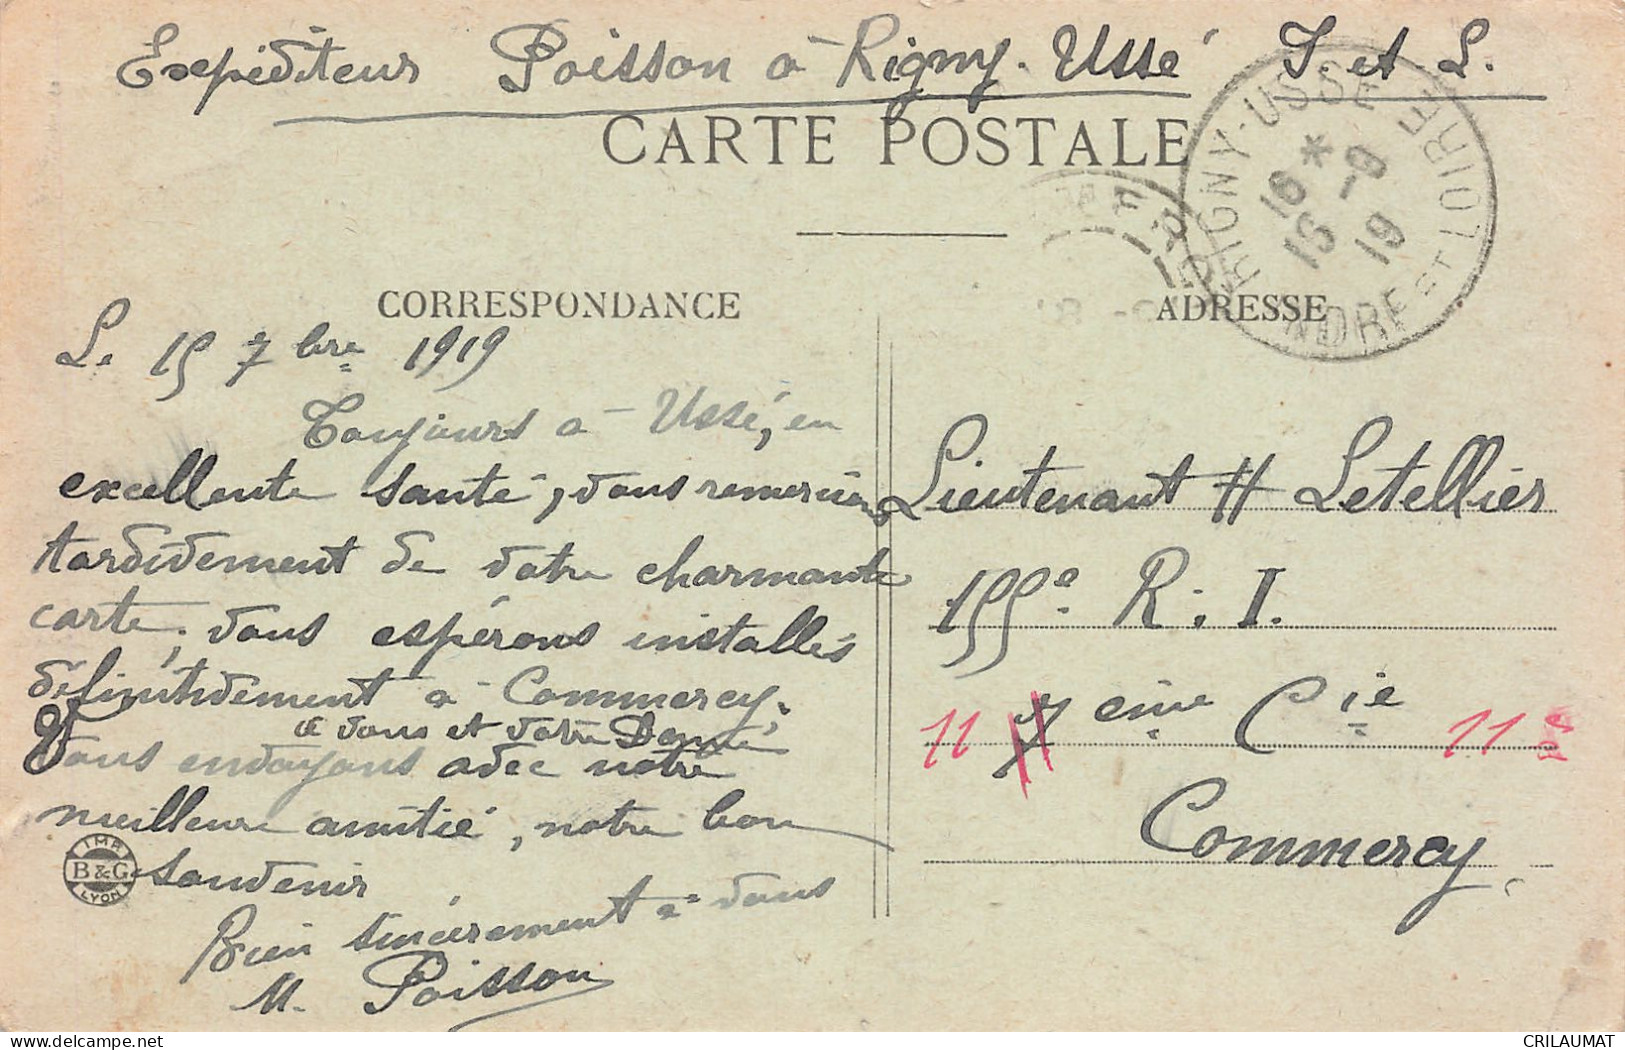 Expéditeur Poisson à Rigny-Ussé I et L.
CARTE POSTALE
RIGNY-USSE
16 *
16 -9
19
INDRE ET LOIRE
CORRESPONDANCE
Le 15 7bre 1919
Toujours à Ussé, en
excellente santé, vous remercions
tardivement de votre charmante
carte, vous espérons installés
définitivement à Commercy.
à vous et votre Dame
Vous envoyons avec notre
meilleure amitié, notre bon
souvenir
Bien sincèrement à vous
M. Poisson
IMP.
B & G
LYON
ADRESSE
Lieutenant H Letellier
155e R. I.
11 7 eme Cie 11e
Commercy
CRILAUMAT